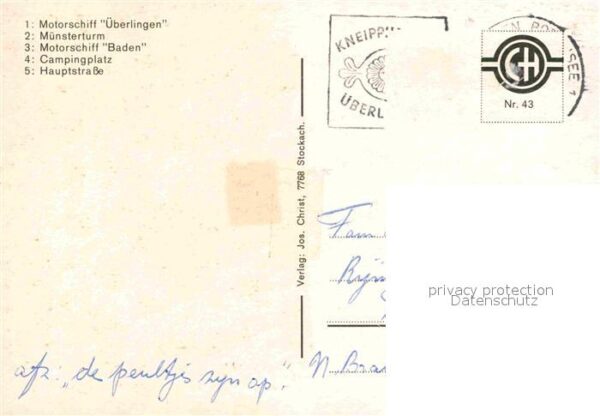 1: Motorschiff "Überlingen"
2: Münsterturm
3: Motorschiff "Baden"
4: Campingplatz
5: Hauptstraße
KNEIPP
ÜBERL
SEE 1
CH
Nr. 43
Verlag: Jos. Christ, 7768 Stockach.
Fam
privacy protection
Datenschutz
afz: „de peultjes zijn op."
N. Bra